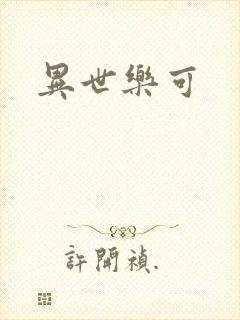 異世樂可
許開禎.